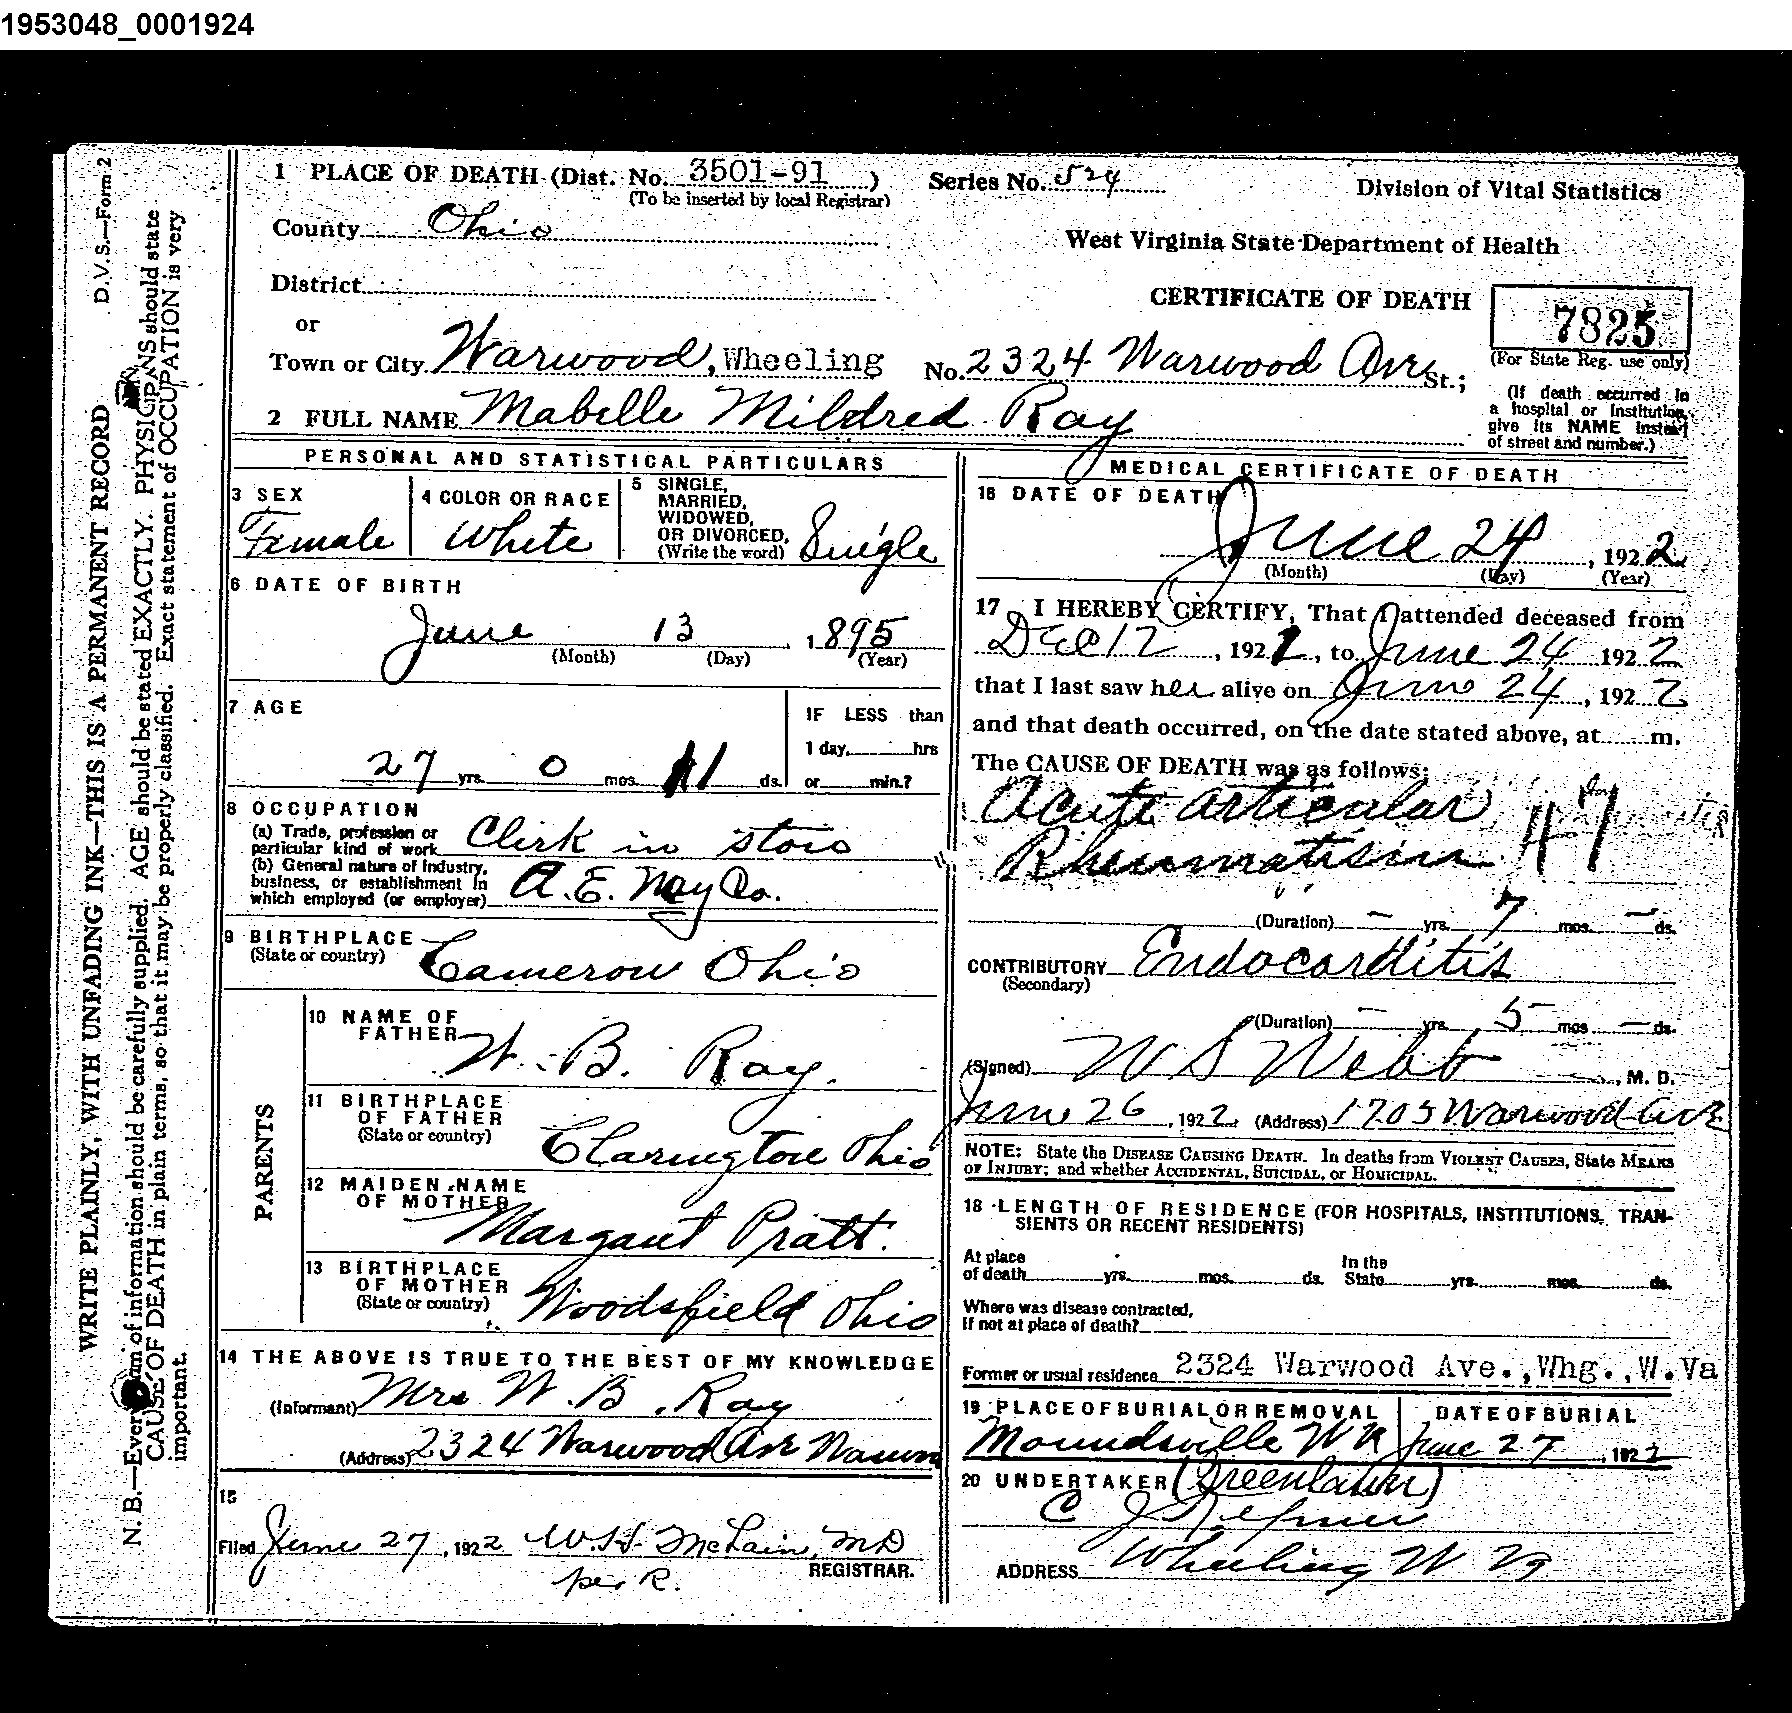 1953048_0001924
D.V.S.—Form 2
WRITE PLAINLY, WITH UNFADING INK—THIS IS A PERMANENT RECORD
N. B.—Every item of information should be carefully supplied. AGE should be stated EXACTLY. PHYSICIANS should state
CAUSE OF DEATH in plain terms, so that it may be properly classified. Exact statement of OCCUPATION is very
important.
1 PLACE OF DEATH (Dist. No. 3501-91 )
(To be inserted by local Registrar)
Series No. 524
Division of Vital Statistics
County Ohio
West Virginia State Department of Health
District
CERTIFICATE OF DEATH
7825
(For State Reg. use only)
or
Town or City Warwood, Wheeling No. 2324 Warwood Ave St.;
(If death occurred in
a hospital or institution,
give its NAME instead
of street and number.)
2 FULL NAME Mabelle Mildred Ray
PERSONAL AND STATISTICAL PARTICULARS
3 SEX
Female
4 COLOR OR RACE
White
5 SINGLE,
MARRIED,
WIDOWED,
OR DIVORCED.
(Write the word) Single
6 DATE OF BIRTH
June 13, 1895
(Month) (Day) (Year)
7 AGE
27 yrs. 0 mos. 11 ds.
IF LESS than
1 day, hrs
or min.?
8 OCCUPATION
(a) Trade, profession or
particular kind of work Clerk in store
(b) General nature of industry,
business, or establishment in
which employed (or employer) A. E. May Co.
9 BIRTHPLACE
(State or country) Cameron Ohio
PARENTS
10 NAME OF
FATHER W. B. Ray.
11 BIRTHPLACE
OF FATHER
(State or country) Clarington Ohio
12 MAIDEN NAME
OF MOTHER Margaret Pratt.
13 BIRTHPLACE
OF MOTHER
(State or country) Woodsfield Ohio
14 THE ABOVE IS TRUE TO THE BEST OF MY KNOWLEDGE
(Informant) Mrs W. B. Ray
(Address) 2324 Warwood Ave
15
Filed June 27, 1922 W. H. McLain, MD
per R. REGISTRAR.
MEDICAL CERTIFICATE OF DEATH
16 DATE OF DEATH
June 24, 1922
(Month) (Day) (Year)
17 I HEREBY CERTIFY, That I attended deceased from
Dec 12, 1921, to June 24 1922
that I last saw her alive on June 24, 1922
and that death occurred, on the date stated above, at m.
The CAUSE OF DEATH was as follows:
Acute articular
Rheumatism 47
(Duration) – yrs. 7 mos. – ds.
CONTRIBUTORY Endocarditis
(Secondary)
(Duration) – yrs. 5 mos. – ds.
(Signed) W S Webb, M. D.
June 26, 1922 (Address) 1705 Warwood Ave
NOTE: State the DISEASE CAUSING DEATH. In deaths from VIOLENT CAUSES, State MEANS
OF INJURY; and whether ACCIDENTAL, SUICIDAL, or HOMICIDAL.
18 LENGTH OF RESIDENCE (FOR HOSPITALS, INSTITUTIONS, TRAN-
SIENTS OR RECENT RESIDENTS)
At place
of death yrs. mos. ds.
In the
State yrs. mos. ds.
Where was disease contracted,
If not at place of death?
Former or usual residence 2324 Warwood Ave., Whg., W.Va
19 PLACE OF BURIAL OR REMOVAL
Moundsville W Va
DATE OF BURIAL
June 27, 1922
20 UNDERTAKER (Greenlawn)
C J
ADDRESS Wheeling W Va